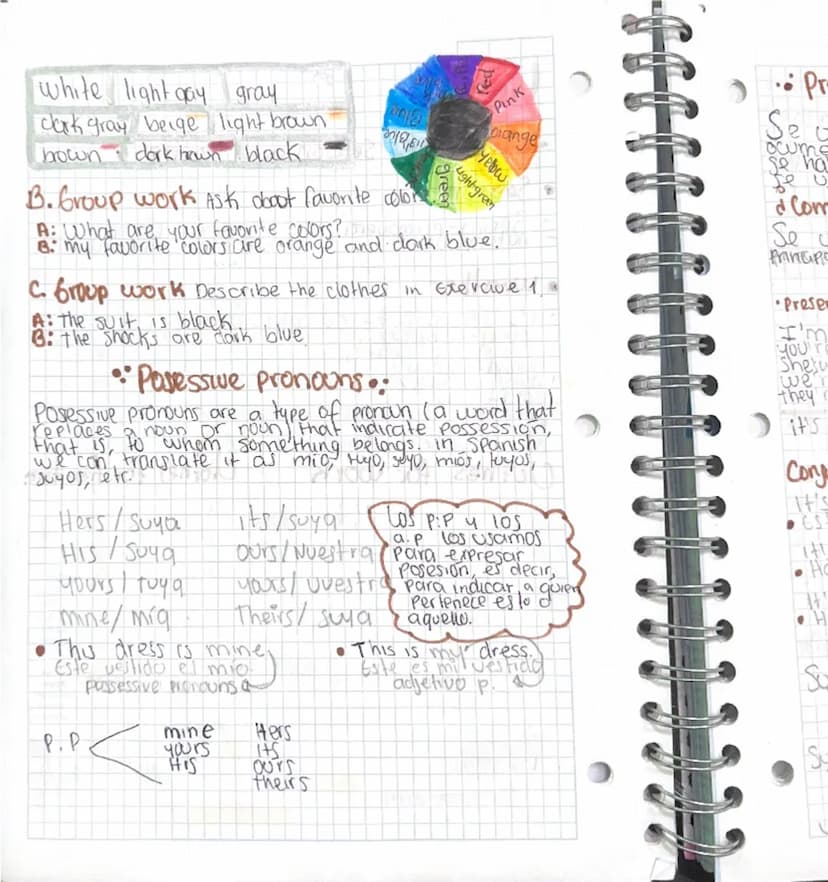 white light gay gray
dark gray beige light brown
brown dark brown black
Red
Pink
orange
Yellow
Lightgreen
green
Blue
B. Group work Ask about favorite color
A: What are your favorite colors?
B: my favorite colors are orange and dark blue.
C. Group work Describe the clothes in Exercive 1.
A: The suit is black
B: the shocks are dark blue
Posessive pronouns
Posessive pronouns are a type of pronoun (a word that
replaces a noun or noun) that indicate possession,
that is, to whom something belongs. in Spanish
we can translate it as mio, tuyo, suyo, mios, tuyos,
suyos, etc.
Hers / suya its/suya
His / Suya ours/Nuestra
yours / tuya yours/ uvestra
mine/ mia Theirs/ suya
Los p.p y los
a.p los usamos
para expresar
posesión, es decir,
para indicar a quien
pertenece esto o
aquello.
• This dress is mine
Este vestido el mio
possessive pronouns
• This is my dress.
Este es mi vestido
adjetivo p.
P.P
mine Hers
yours its
His ours
theirs
Se
Se
• Presen
I'm
you're
we
they
it's
It's